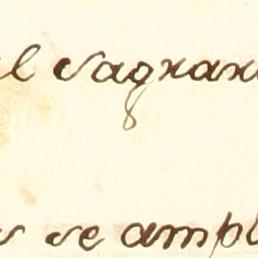 el sagrari
s se ampl